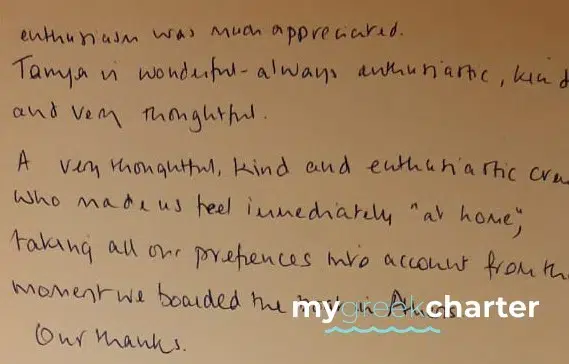 enthusiasm was much appreciated.
Tanya is wonderful - always enthusiastic, kind
and very thoughtful.
A very thoughtful, kind and enthusiastic crew
who made us feel immediately "at home",
taking all our prefences into account from the
moment we boarded the in
Our thanks.
mygreekcharter